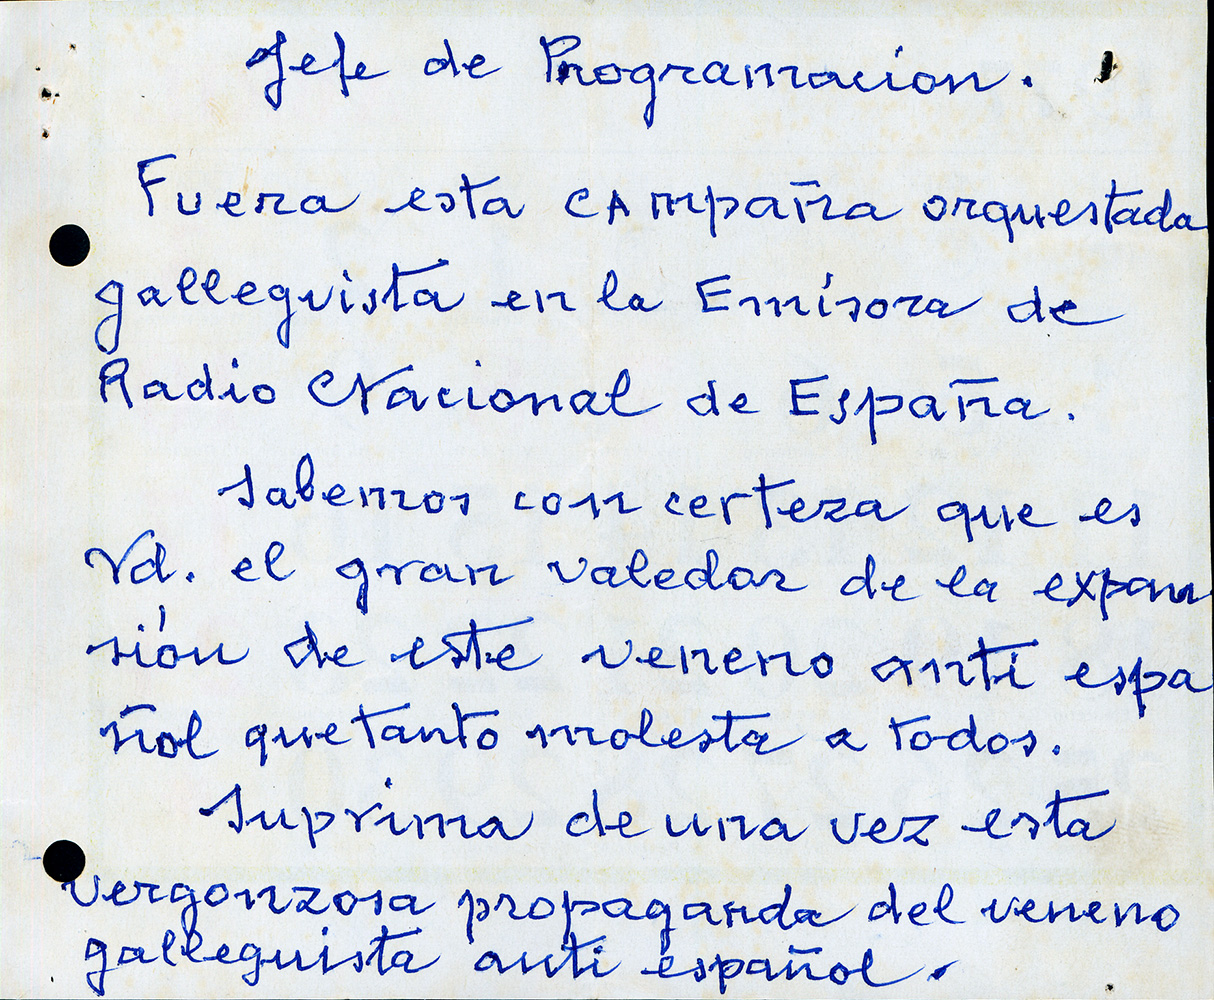 Jefe de Programacion.
Fuera esta CAmpaña orquestada
galleguista en la Emísora de
Radio Nacional de España.
Sabemos con certeza que es
Vd. el gran valedor de la expan
sión de este veneno anti espa
ñol que tanto molesta a todos.
Suprima de una vez esta
vergonzosa propaganda del veneno
galleguista anti español.